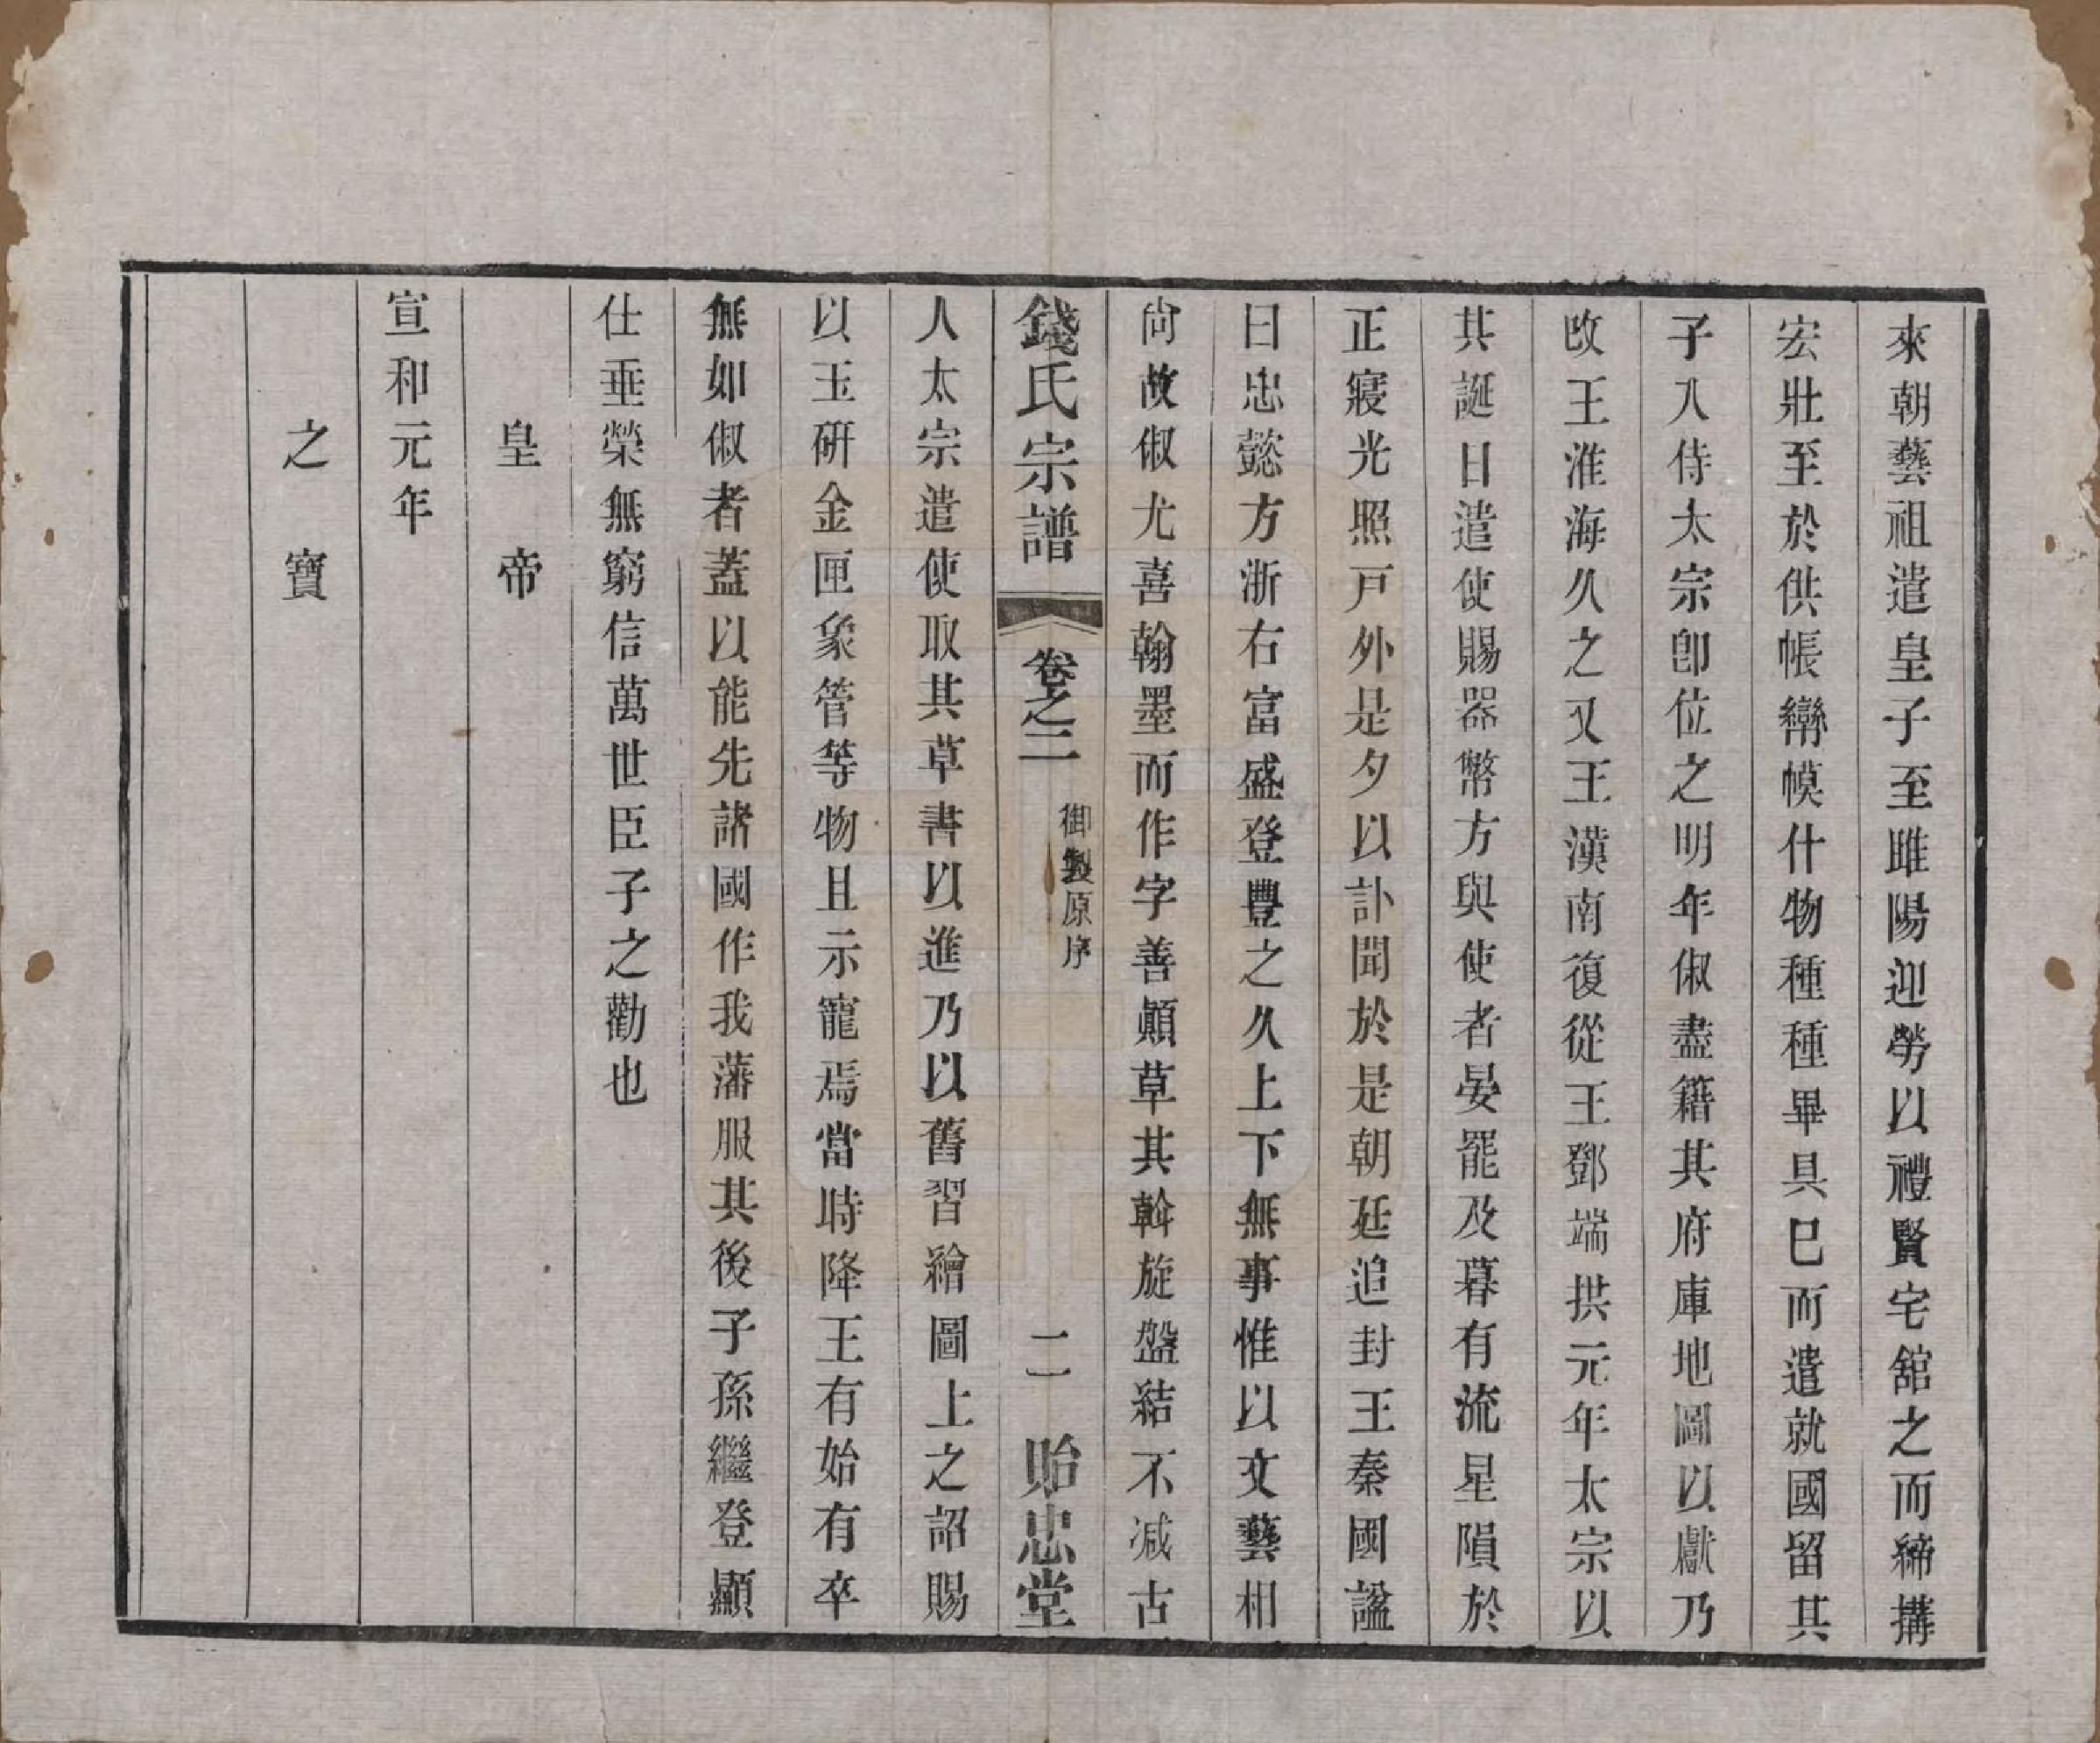 來朝藝祖遣皇子至雎陽迎勞以禮賢宅舘之而締搆
宏壯至於供帳幈幙什物種種畢具巳而遣就國留其
子入侍太宗卽位之明年俶盡籍其府庫地圖以獻乃
改王淮海久之又王漢南復從王鄧端拱元年太宗以
其誕日遣使賜器幣方與使者晏罷及暮有流星隕於
正寢光照戸外是夕以訃聞於是朝廷追封王秦國諡
曰忠懿方浙右富盛登豐之久上下無事惟以文藝相
尙故俶尤喜翰墨而作字善顚草其斡旋盤結不減古
錢氏宗譜 卷之二 御製原序 二 貽忠堂
人太宗遣使取其草書以進乃以舊習繪圖上之詔賜
以玉硏金匣象管等物且示寵焉當時降王有始有卒
無如俶者蓋以能先諸國作我藩服其後子孫繼登顯
仕垂榮無窮信萬世臣子之勸也
皇帝
宣和元年
之寶